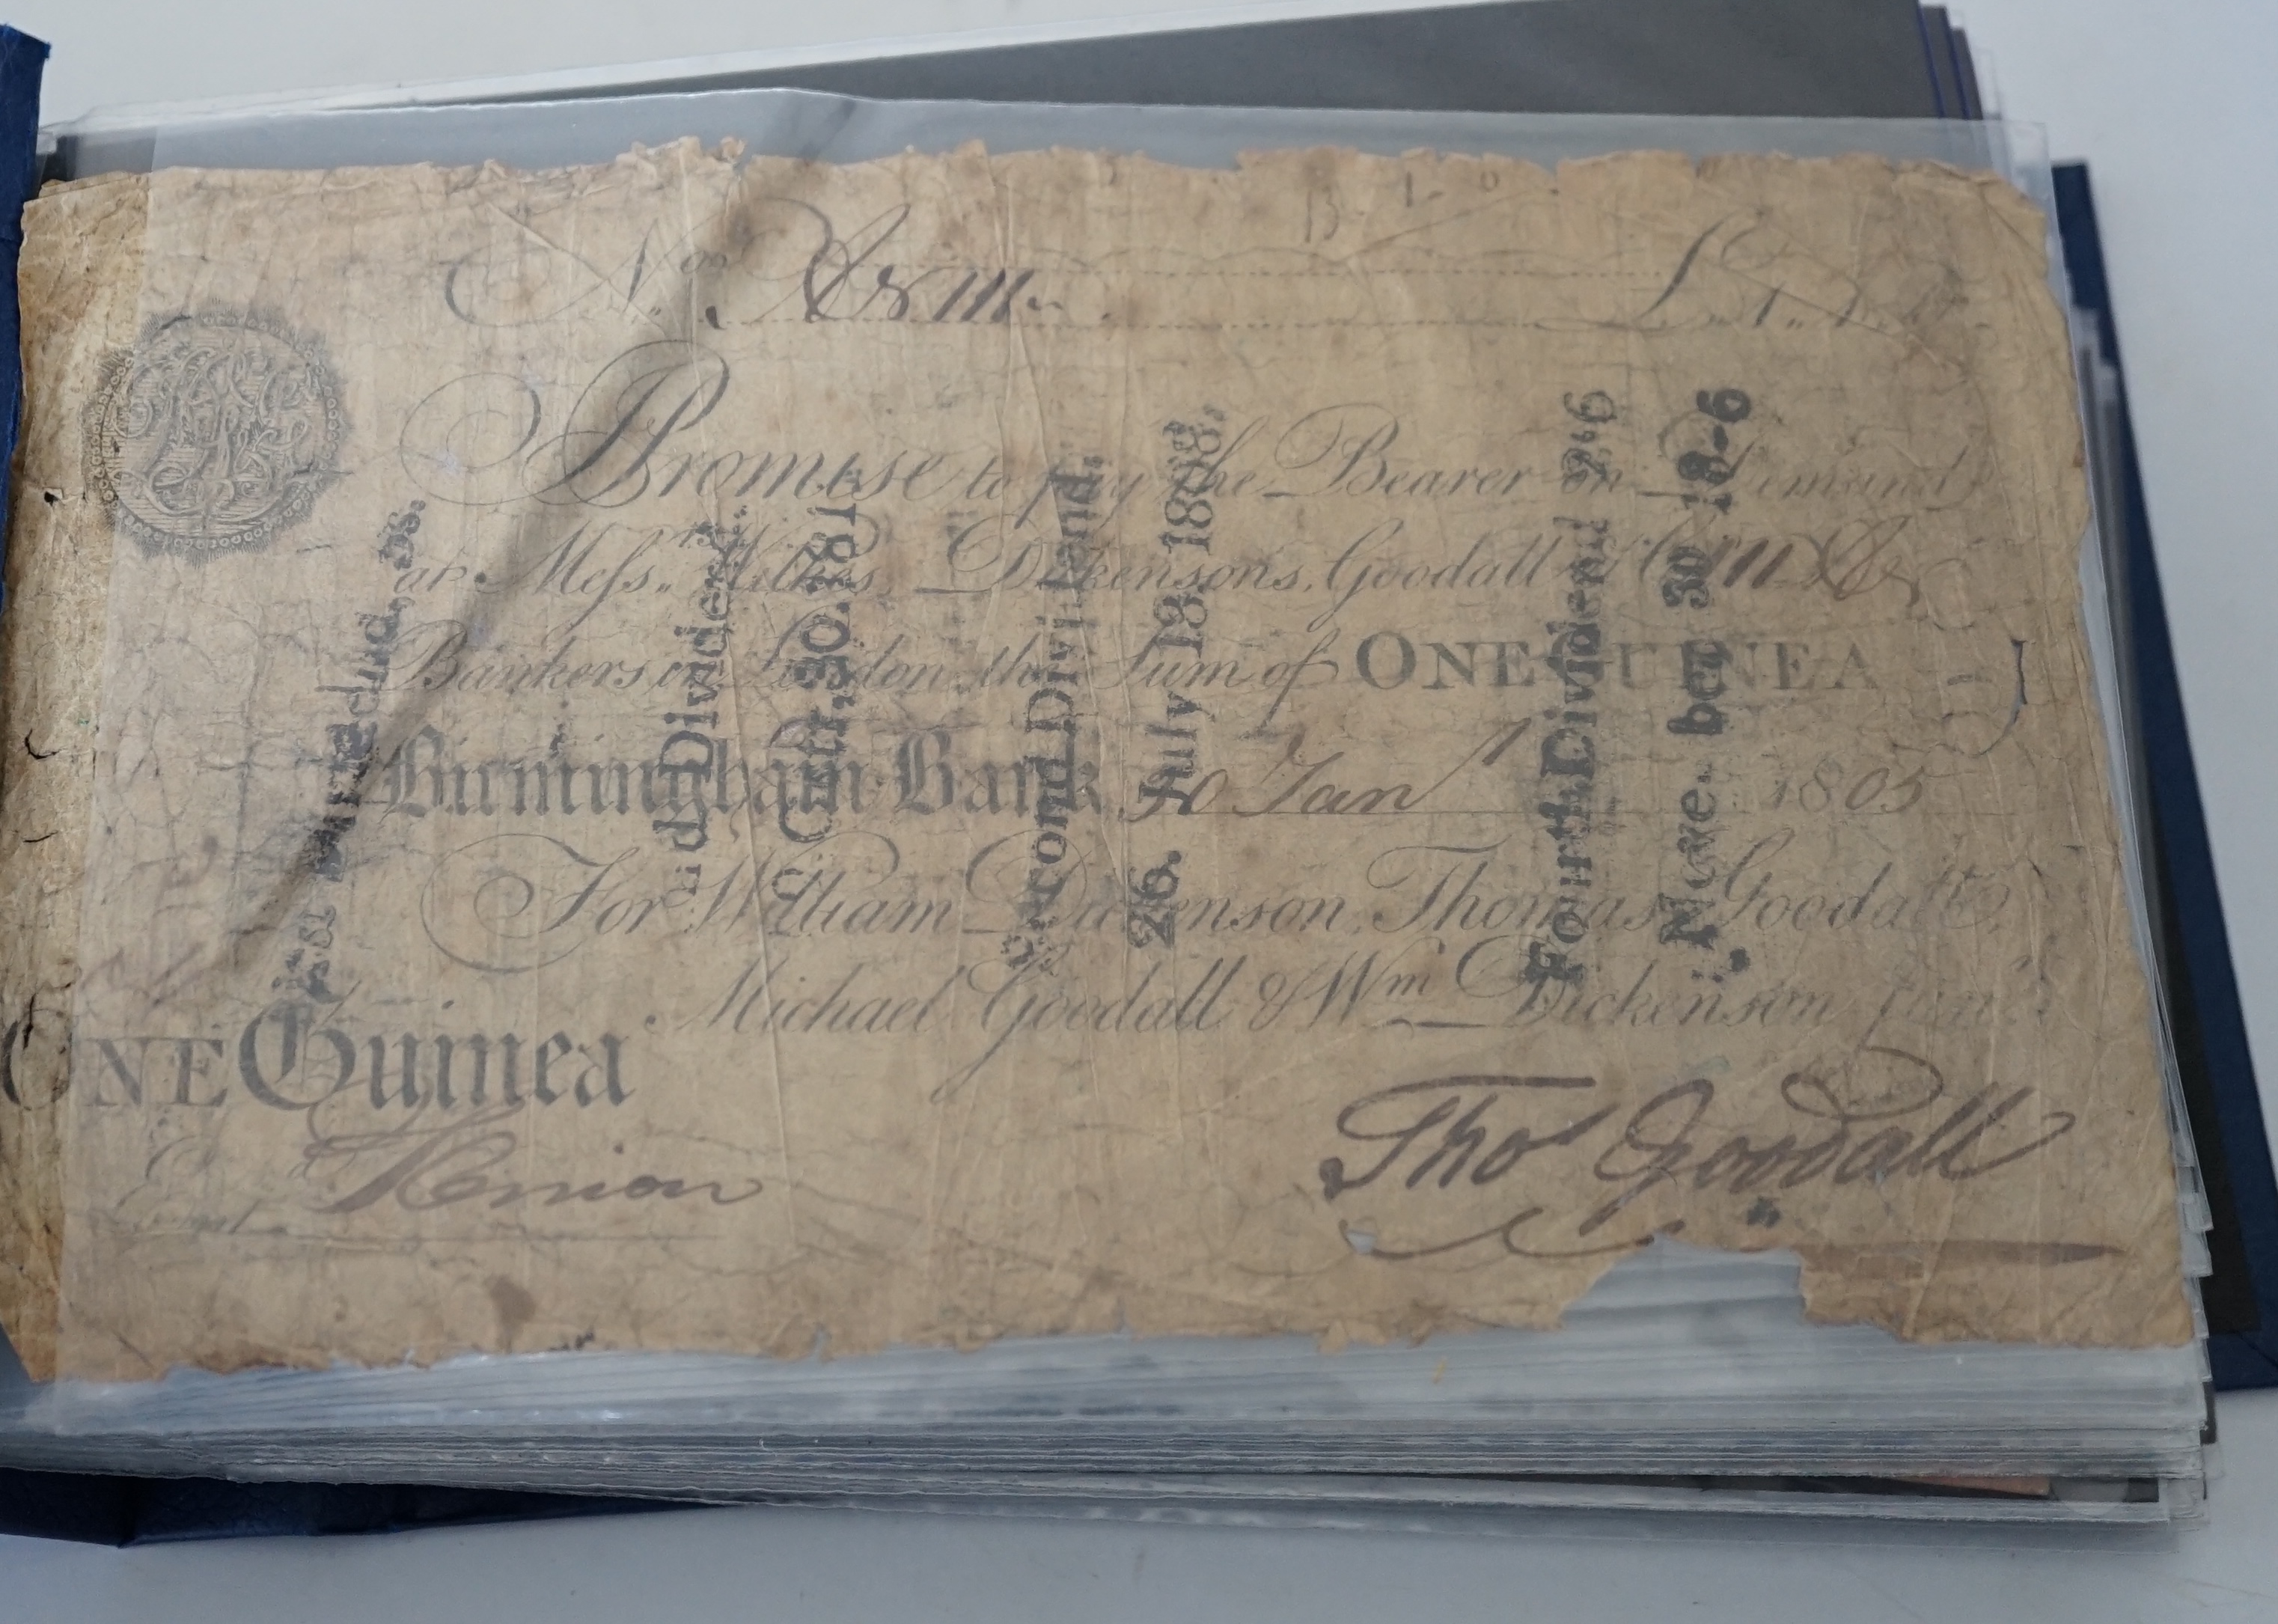 Nos
I Promise to pay the Bearer on Demand
at Mefsrs. Wilkes, Dickensons, Goodall
Bankers in London the Sum of ONE GUINEA
Birmingham Bank 10 Jany 1805
For William Dickenson, Thomas Goodall,
Michael Goodall & Wm Dickenson junr.
ONE Guinea
Entd Kenion
Thos Goodall
Dividend
Octr. 30. 181
Second Dividend,
26. July 13 1808,
Fourth Dividend 2.6
30 18-6